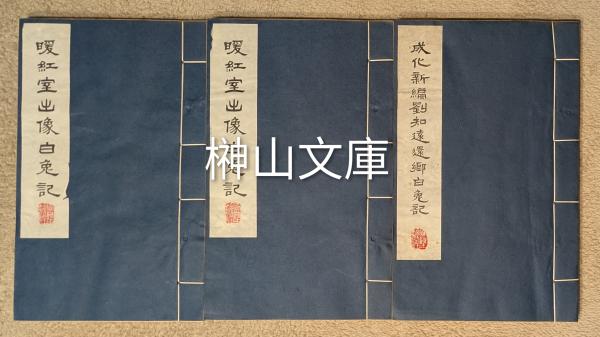 暖紅室出像白兔記
暖紅室出像兔記
成化新編劉知遠還鄉白兔記
榊山文庫